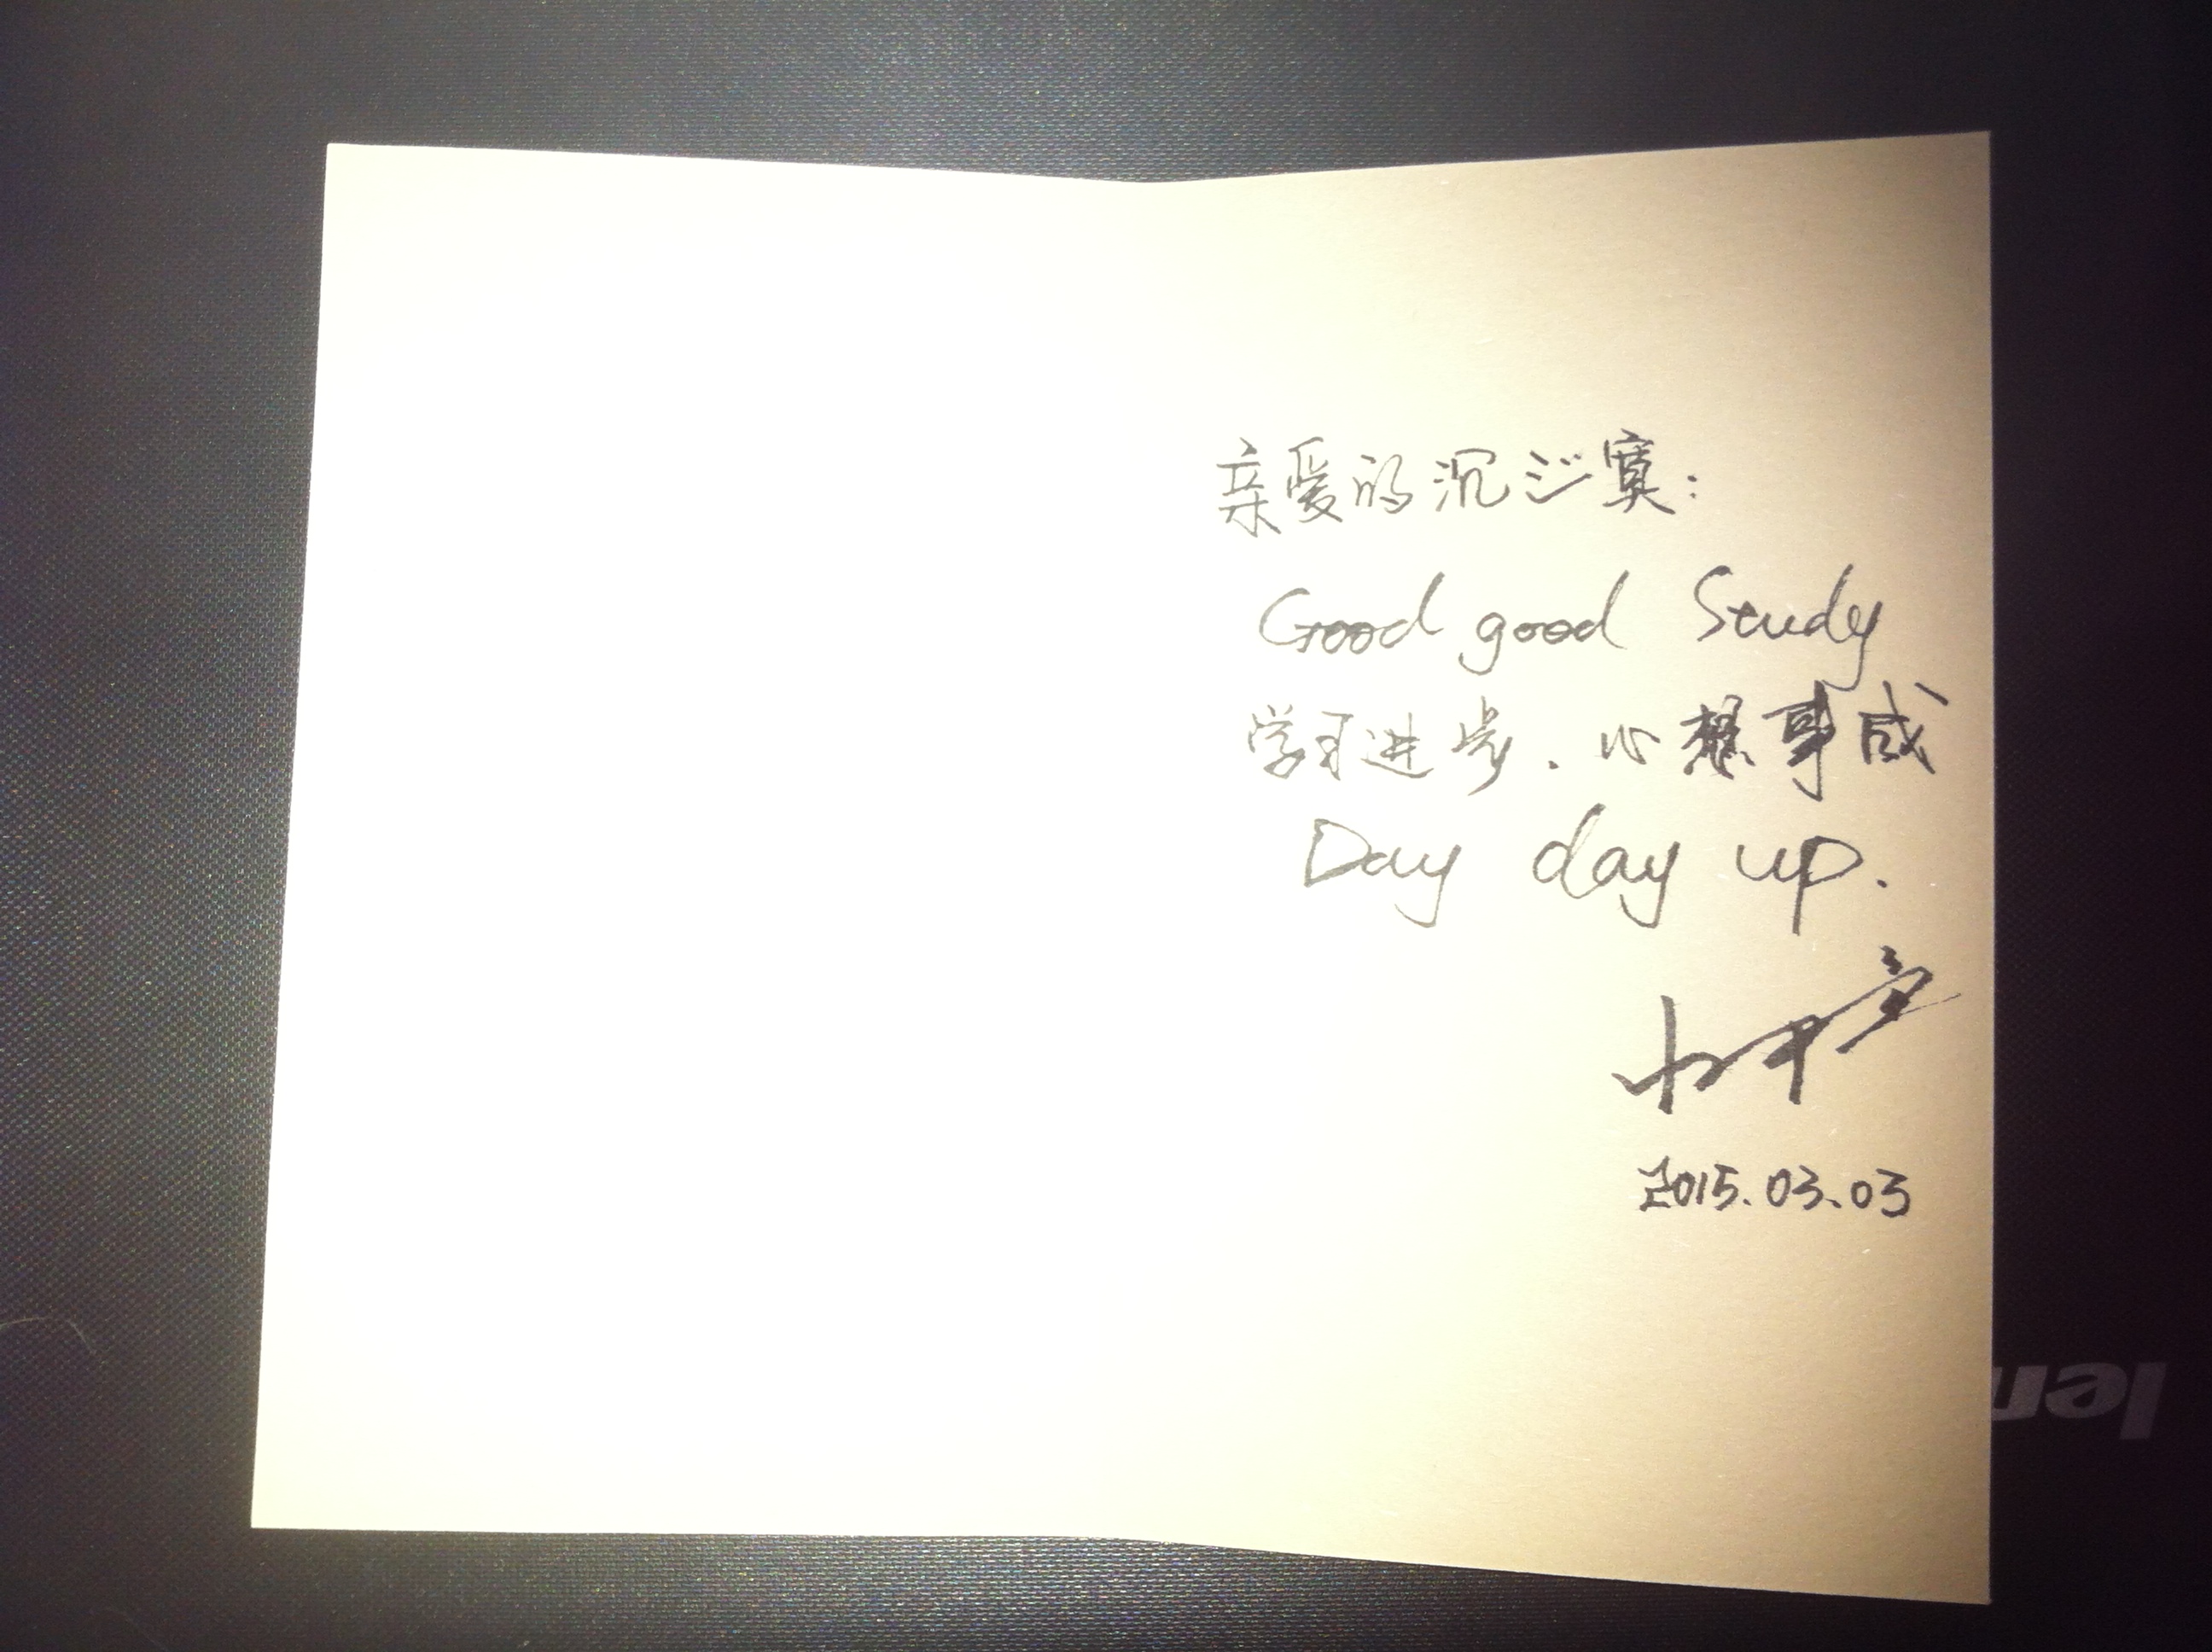 亲爱的沉ジ寞:
Good good Study
学习进步.心想事成
Day day up.
2015.03.03
len